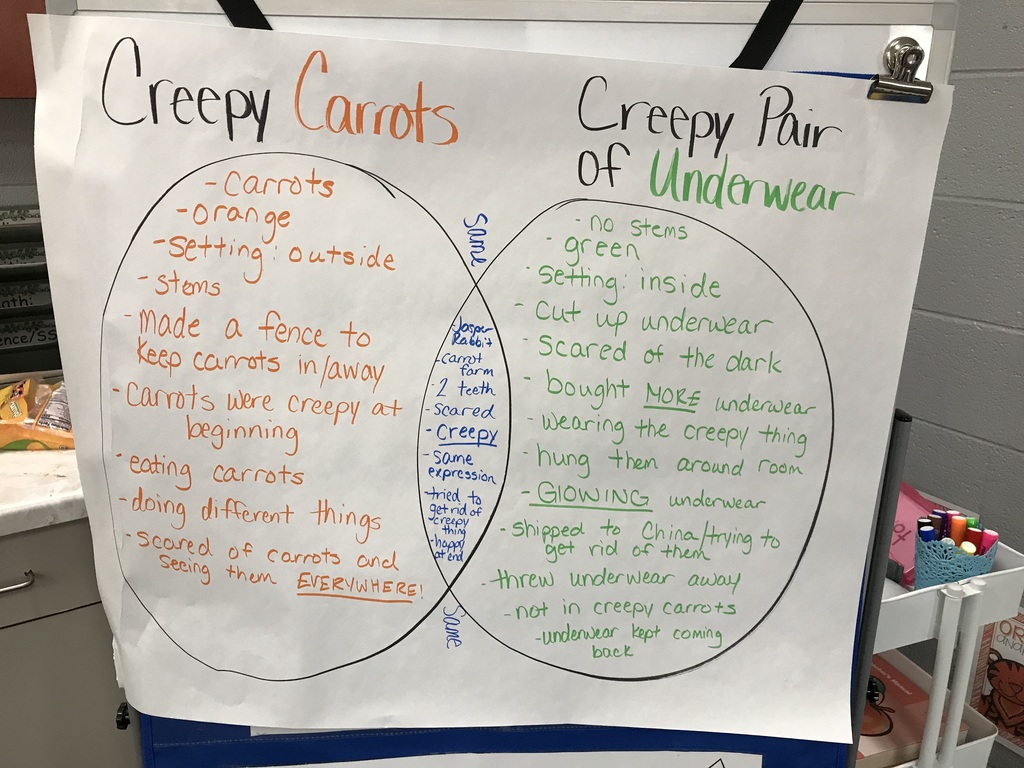 Creepy Carrots
Creepy Pair
of Underwear
- Carrots
- orange
- setting: outside
- stems
- made a fence to
keep carrots in/away
- Carrots were creepy at
beginning
- eating carrots
- doing different things
- scared of carrots and
seeing them EVERYWHERE!
Same
- Jasper
Rabbit
- carrot
farm
- 2 teeth
- scared
- Creepy
- same
expression
- tried to
get rid of
creepy
thing
- happy
at end
Same
- no stems
- green
- setting: inside
- cut up underwear
- scared of the dark
- bought MORE underwear
- wearing the creepy thing
- hung them around room
- GlOWING underwear
- shipped to China/trying to
get rid of them
- threw underwear away
- not in creepy carrots
- underwear kept coming
back
nth:
ence/SS